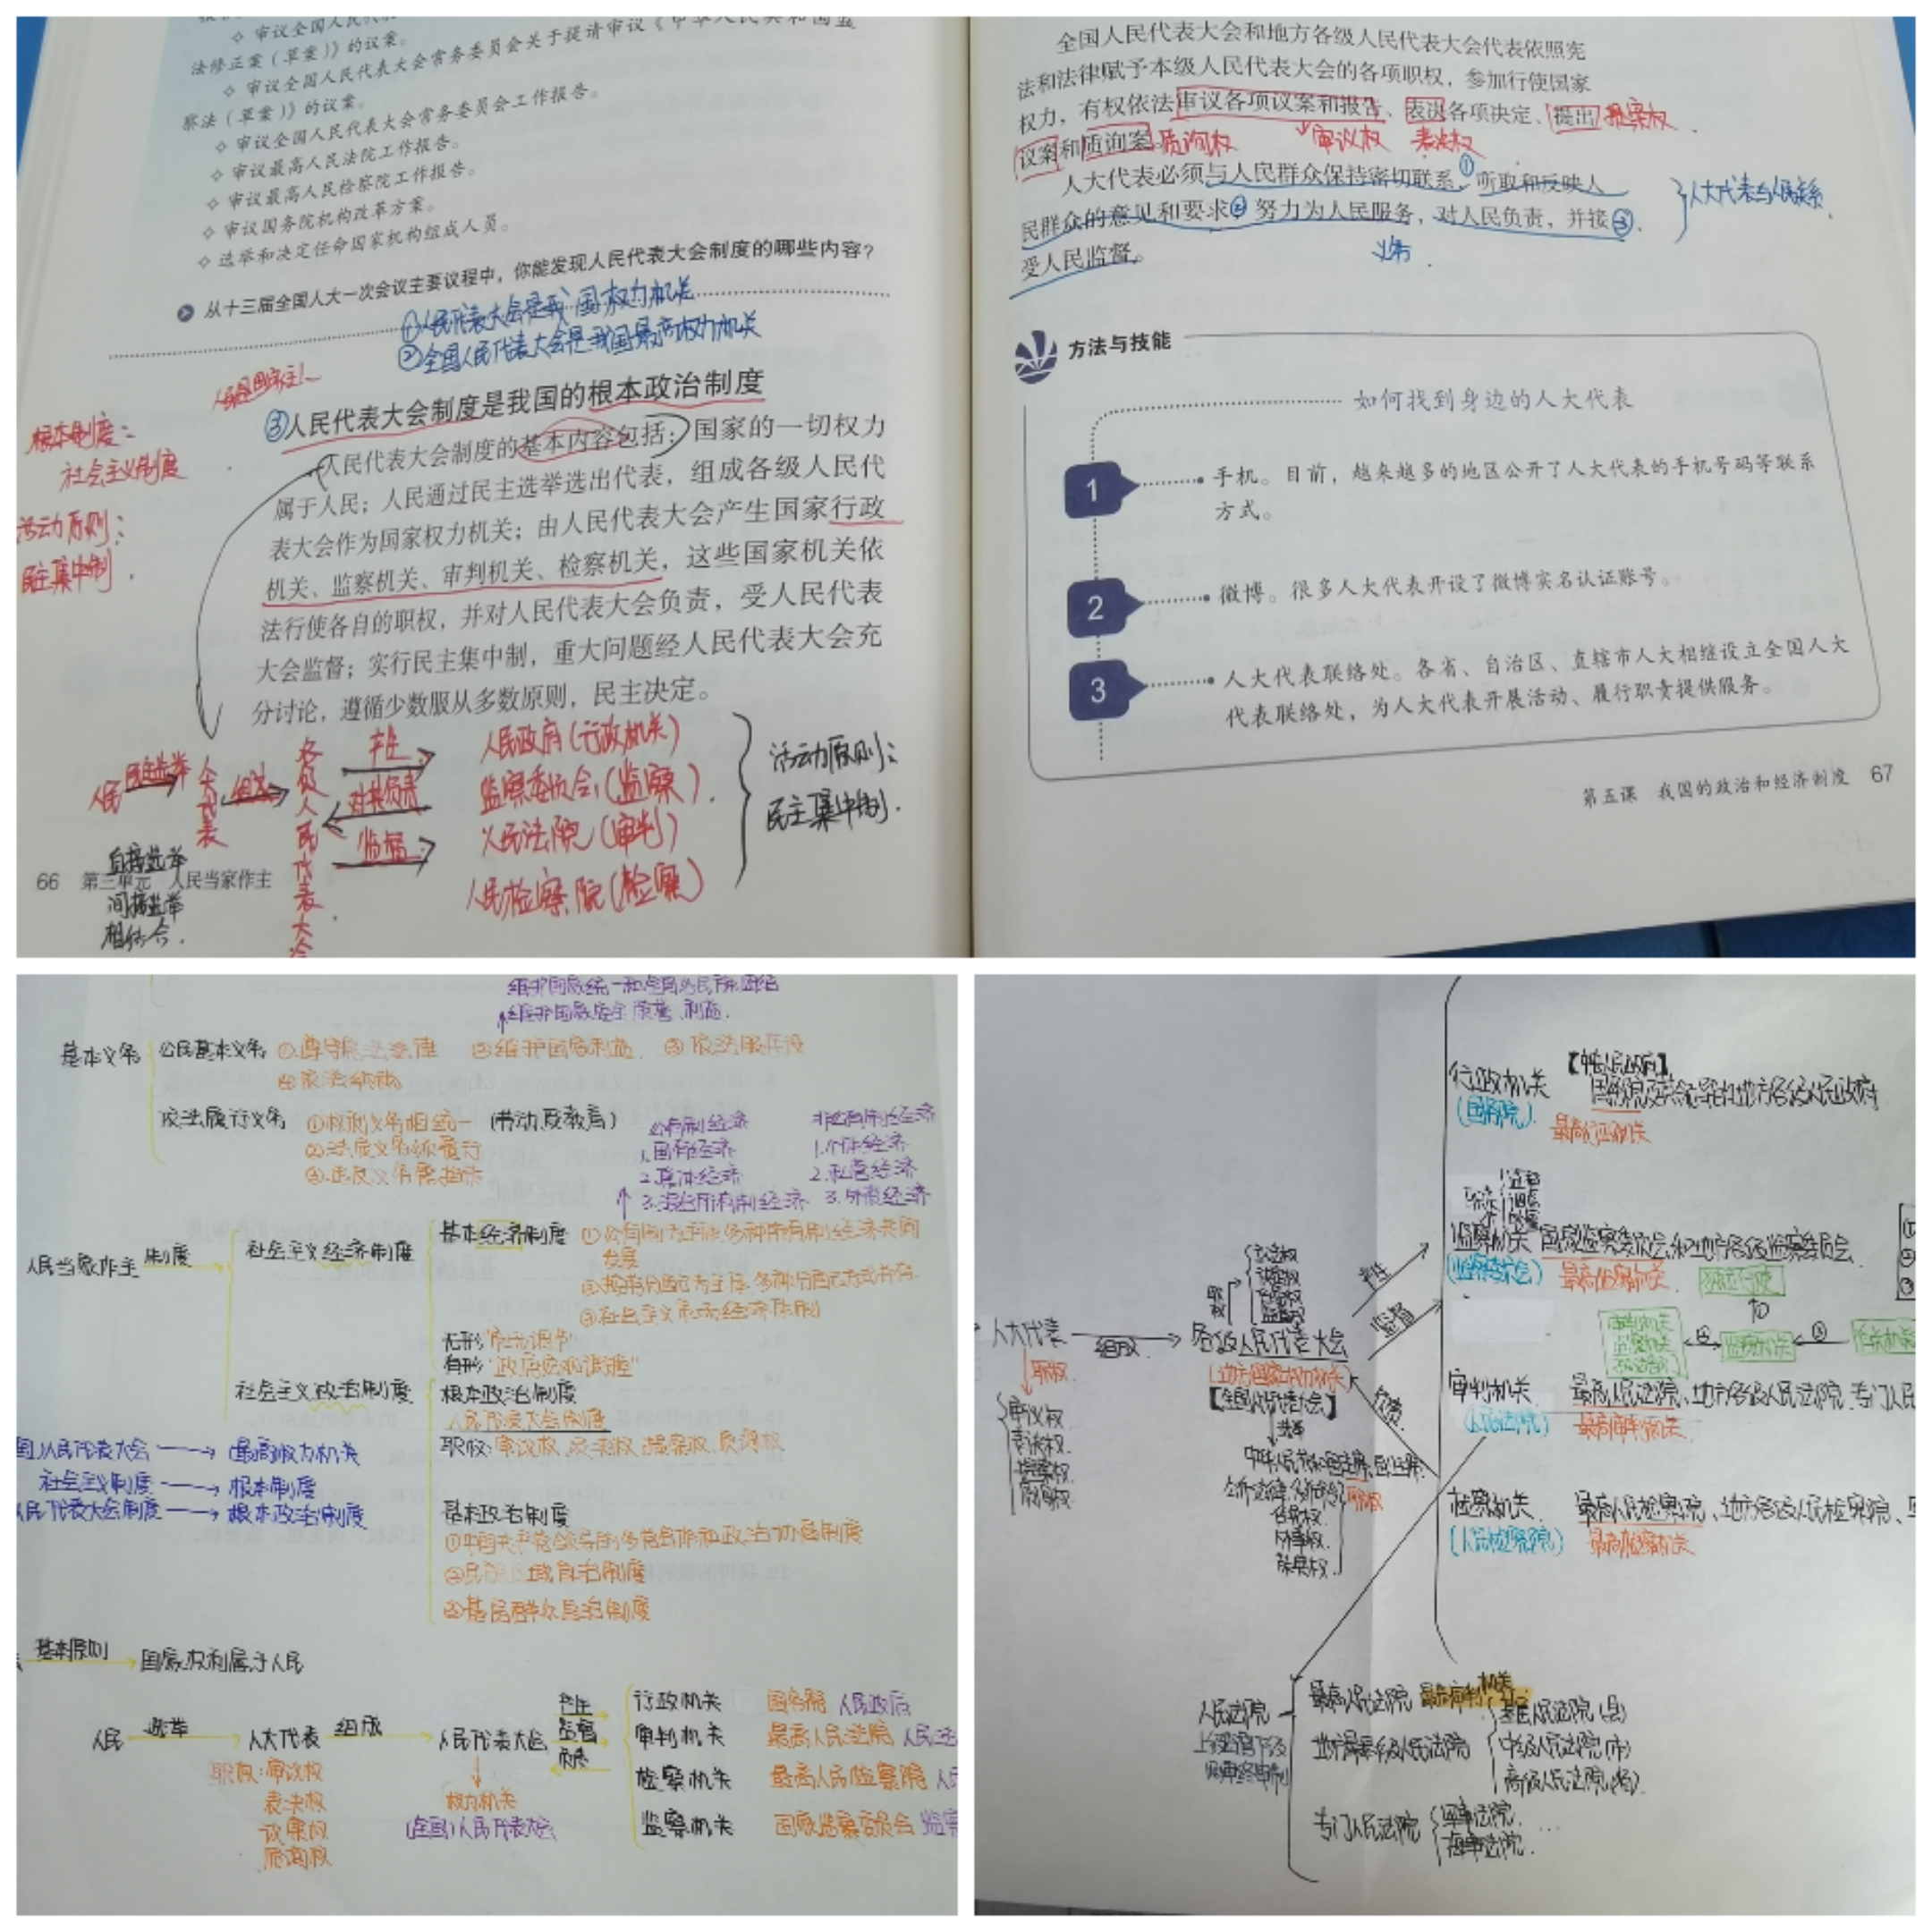 ◇ 审议全国人民代表
法修正案（草案）》的议案。
◇ 审议全国人民代表大会常务委员会关于提请审议《中华人民共和国监
察法（草案）》的议案。
◇ 审议全国人民代表大会常务委员会工作报告。
◇ 审议最高人民法院工作报告。
◇ 审议最高人民检察院工作报告。
◇ 审议国务院机构改革方案。
◇ 选举和决定任命国家机构组成人员。
从十三届全国人大一次会议主要议程中，你能发现人民代表大会制度的哪些内容？
①人民代表大会是我国权力机关
②全国人民代表大会是我国最高权力机关
③人民代表大会制度是我国的根本政治制度
根本制度：
社会主义制度
活动原则：
民主集中制.
人民代表大会制度的基本内容包括：国家的一切权力
属于人民；人民通过民主选举选出代表，组成各级人民代
表大会作为国家权力机关；由人民代表大会产生国家行政
机关、监察机关、审判机关、检察机关，这些国家机关依
法行使各自的职权，并对人民代表大会负责，受人民代表
大会监督；实行民主集中制，重大问题经人民代表大会充
分讨论，遵循少数服从多数原则，民主决定。
人民 民主选举 人大代表 组成 各级人民代表大会
产生
对其负责
监督
人民政府（行政机关）
监察委员会（监察）.
人民法院（审判）
人民检察院（检察）
活动原则：
民主集中制.
直接选举
间接选举
相结合.
66 第三单元 人民当家作主
全国人民代表大会和地方各级人民代表大会代表依照宪
法和法律赋予本级人民代表大会的各项职权，参加行使国家
权力，有权依法审议各项议案和报告、表决各项决定、提出 提案权
议案和质询案。质询权 审议权 表决权
人大代表必须与人民群众保持密切联系①，听取和反映人
民群众的意见和要求②，努力为人民服务，对人民负责，并接③
受人民监督。
义务.
人大代表与人民联系.
方法与技能
如何找到身边的人大代表
1 手机。目前，越来越多的地区公开了人大代表的手机号码等联系
方式。
2 微博。很多人大代表开设了微博实名认证账号。
3 人大代表联络处。各省、自治区、直辖市人大相继设立全国人大
代表联络处，为人大代表开展活动、履行职责提供服务。
第五课 我国的政治和经济制度 67
维护国家统一和全国各民族团结
维护国家安全、荣誉、利益.
基本义务 公民基本义务 ①遵守宪法法律 ②维护国家利益 ③依法服兵役
④依法纳税
依法履行义务 ①权利义务相统一 （劳动、受教育）
②法定义务须履行
③违反义务需担责
公有制经济 非公有制经济
1.国有经济 1.个体经济
2.集体经济 2.私营经济
3.混合所有制经济 3.外资经济
人民当家作主 制度 社会主义经济制度 基本经济制度 ①公有制为主体、多种所有制经济共同
发展
②按劳分配为主体、多种分配方式并存.
③社会主义市场经济体制
无形 "市场调节"
有形 "政府宏观调控"
社会主义政治制度 根本政治制度
人民代表大会制度
职权：审议权、表决权、提案权、质询权
国人民代表大会 → 最高权力机关
社会主义制度 → 根本制度
人民代表大会制度 → 根本政治制度
基本政治制度
①中国共产党领导的多党合作和政治协商制度
②民族区域自治制度
③基层群众自治制度
基本原则 国家权利属于人民
人民 选举 人大代表 组成 人民代表大会
产生
监督
负责
职权：审议权
表决权
议案权
质询权
权力机关
（全国）人民代表大会
行政机关 国务院 人民政府
审判机关 最高人民法院 人民法
检察机关 最高人民检察院 人
监察机关 国家监察委员会 监察
行政机关 【中央人民政府】
国务院及其统一领导的地方各级人民政府
（国务院） 最高行政机关
监察机关 国家监察委员会和地方各级监察委员会
（监察委员会） 最高监察机关
人大代表 组成 各级人民代表大会
职权
审议权
表决权.
提案权
质询权.
（地方国家权力机关）
【全国人民代表大会】
选举
产生
监督
负责
职权
任免权.
审判机关 最高人民法院、地方各级人民法院、专门人民
（人民法院） 最高审判机关
检察机关 最高人民检察院、地方各级人民检察院、
（人民检察院） 最高检察机关
人民法院 最高人民法院 最高审判机关
上级监督下级
地方各级人民法院
基层人民法院（县）
中级人民法院（市）
高级人民法院（省）
专门人民法院 军事法院.
海事法院. …